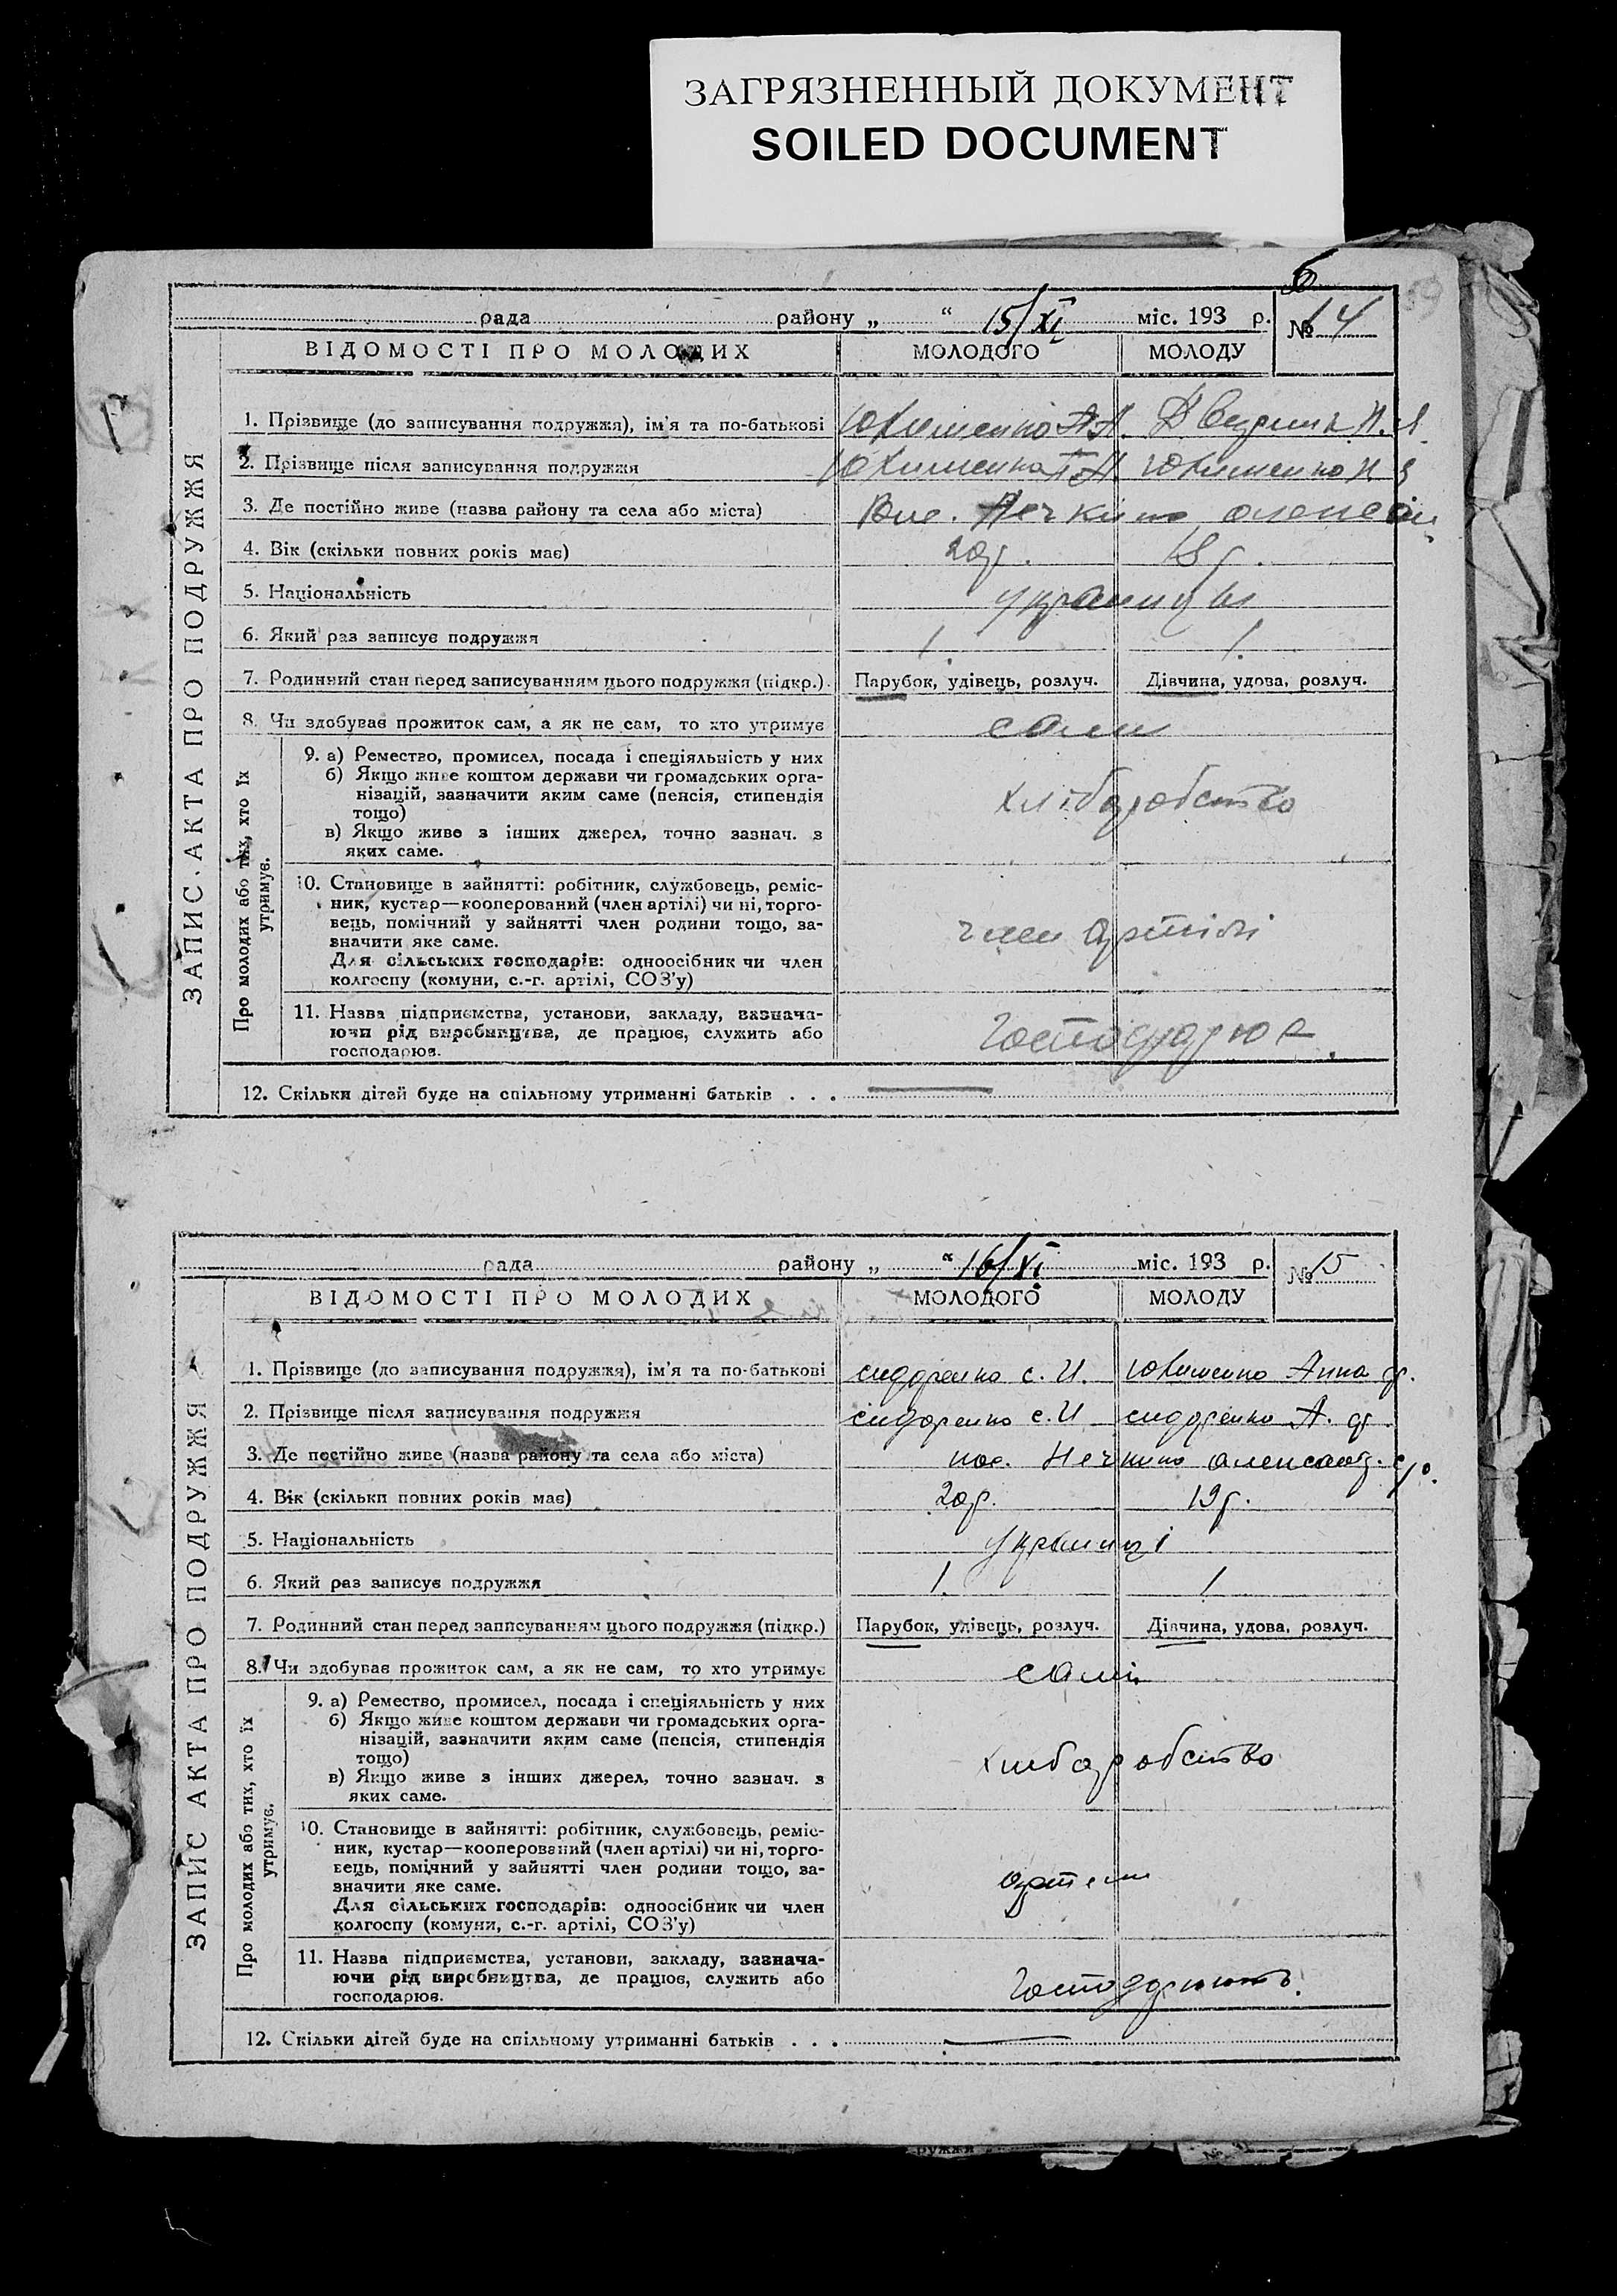 ЗАГРЯЗНЕННЫЙ ДОКУМЕНТ
SOILED DOCUMENT
рада району „ “ 15/XI міс. 193 р. № 14
ЗАПИС АКТА ПРО ПОДРУЖЖЯ
ВІДОМОСТІ ПРО МОЛОДИХ МОЛОДОГО МОЛОДУ
1. Прізвище (до записування подружжя), ім'я та по-батькові Юхименко
2. Прізвище після записування подружжя Юхименко Юхименко
3. Де постійно живе (назва району та села або міста)
4. Вік (скільки повних років має) 20р. 18 р.
5. Національність
6. Який раз записує подружжя 1. 1.
7. Родинний стан перед записуванням цього подружжя (підкр.) Парубок, удівець, розлуч. Дівчина, удова, розлуч.
8. Чи здобуває прожиток сам, а як не сам, то хто утримує сами
Про молодих або тих, хто їх утримує.
9. а) Ремество, промисел, посада і спеціяльність у них
б) Якщо живе коштом держави чи громадських орга-
нізацій, зазначити яким саме (пенсія, стипендія
тощо) хліборобство
в) Якщо живе з інших джерел, точно зазнач. з
яких саме.
10. Становище в зайнятті: робітник, службовець, реміс-
ник, кустар—кооперований (член артілі) чи ні, торго-
вець, помічний у зайнятті член родини тощо, за-
значити яке саме. член артілі
Для сільських господарів: одноосібник чи член
колгоспу (комуни, с.-г. артілі, СОЗ'у)
11. Назва підприємства, установи, закладу, зазнача-
ючи рід виробництва, де працює, служить або
господарює.
12. Скільки дітей буде на спільному утриманні батьків . . . —
рада району „ “ 16/XI міс. 193 р. № 15
ЗАПИС АКТА ПРО ПОДРУЖЖЯ
ВІДОМОСТІ ПРО МОЛОДИХ МОЛОДОГО МОЛОДУ
1. Прізвище (до записування подружжя), ім'я та по-батькові сидоренко с. И. Юхименко Анна
2. Прізвище після записування подружжя сидоренко с. И сидоренко А.
3. Де постійно живе (назва району та села або міста)
4. Вік (скільки повних років має) 20р. 19 р.
5. Національність українці
6. Який раз записує подружжя 1. 1
7. Родинний стан перед записуванням цього подружжя (підкр.) Парубок, удівець, розлуч. Дівчина, удова, розлуч.
8. Чи здобуває прожиток сам, а як не сам, то хто утримує самі
Про молодих або тих, хто їх утримує.
9. а) Ремество, промисел, посада і спеціяльність у них
б) Якщо живе коштом держави чи громадських орга-
нізацій, зазначити яким саме (пенсія, стипендія
тощо) хлиборобство
в) Якщо живе з інших джерел, точно зазнач. з
яких саме.
10. Становище в зайнятті: робітник, службовець, реміс-
ник, кустар—кооперований (член артілі) чи ні, торго-
вець, помічний у зайнятті член родини тощо, за-
значити яке саме.
Для сільських господарів: одноосібник чи член
колгоспу (комуни, с.-г. артілі, СОЗ'у)
11. Назва підприємства, установи, закладу, зазнача-
ючи рід виробництва, де працює, служить або
господарює.
12. Скільки дітей буде на спільному утриманні батьків . . . —